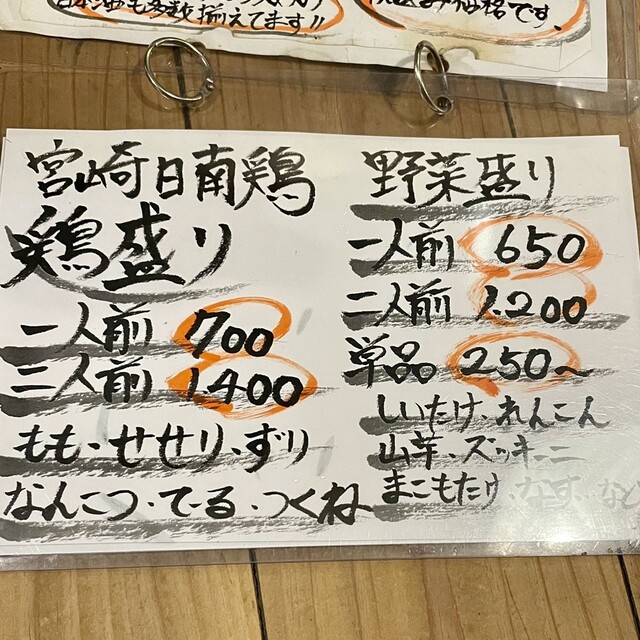 日本酒も多数揃えてます!!
価格です。
宮崎日南鶏
鶏盛り
一人前 700
二人前 1.400
もも、せせり、ずり
なんこつ・てーる・つくね
野菜盛り
一人前 650
二人前 1.200
単品 250〜
しいたけ、れんこん
山芋、ズッキーニ
まこもたけ、なす、など